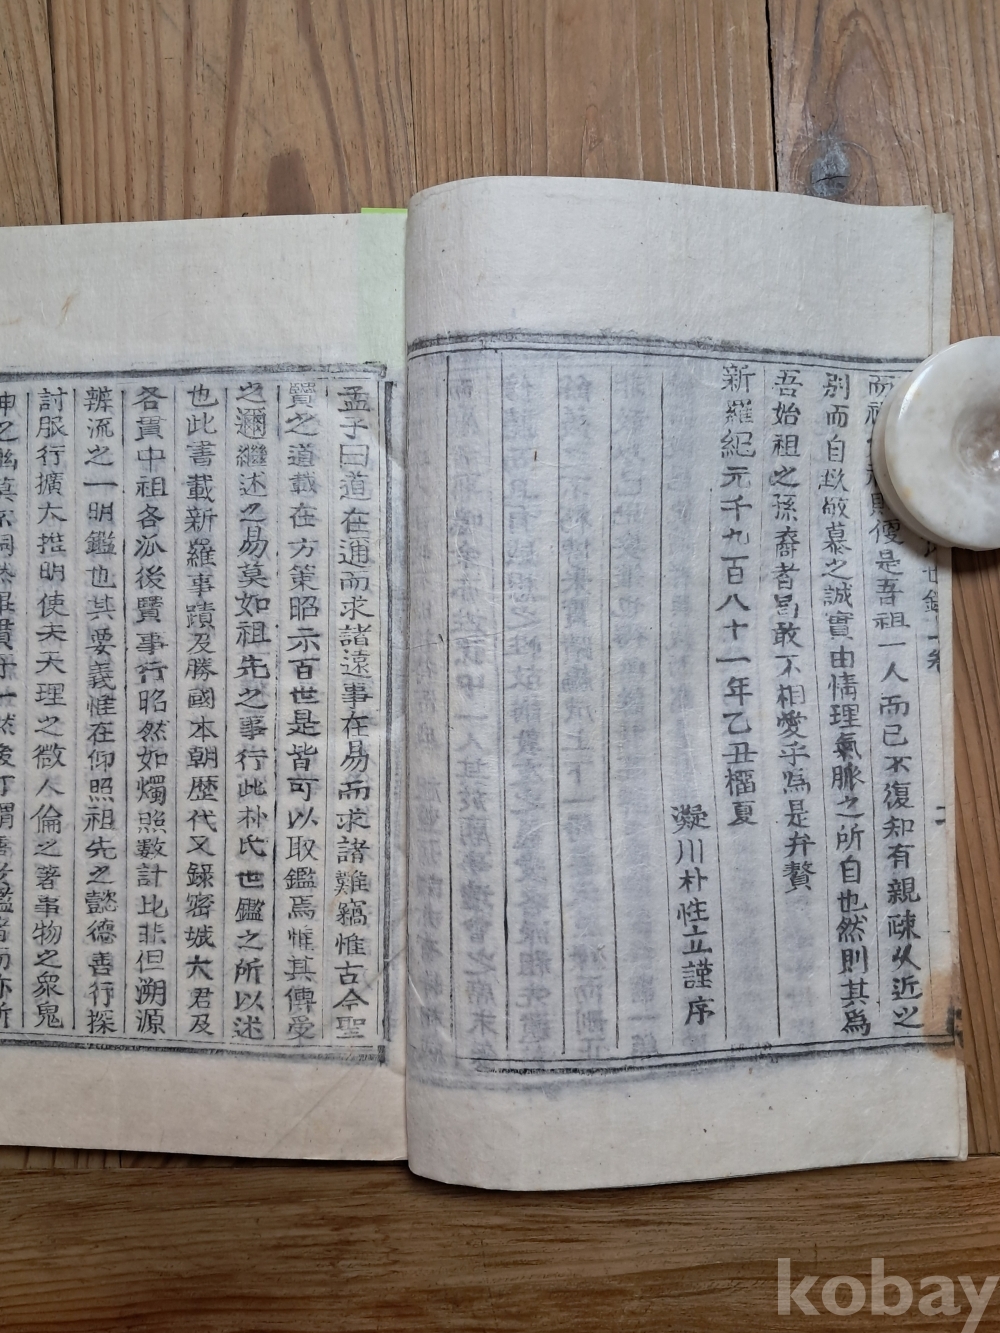 便是吾祖一人而已不復知有親疎從近之
別而自致敬慕之誠實由情理氣脈之所自也然則其爲
吾始祖之孫裔者曷敢不相愛乎爲是弁贅
新羅紀元千九百八十一年乙丑榴夏
凝川朴性立謹序
孟子曰道在邇而求諸遠事在易而求諸難竊惟古今聖
賢之道載在方策昭示百世是皆可以取鑑焉惟其傳受
之邇繼述之易莫如祖先之事行此朴氏世鑑之所以述
也此書載新羅事蹟及勝國本朝歷代又錄密城大君及
各貫中祖各派後賢事行昭然如燭照數計比非但溯源
辨流之一明鑑也其要義惟在仰照祖先之懿德善行探
討服行擴大推明使夫天理之微人倫之著事物之衆鬼
神之幽莫不
kobay